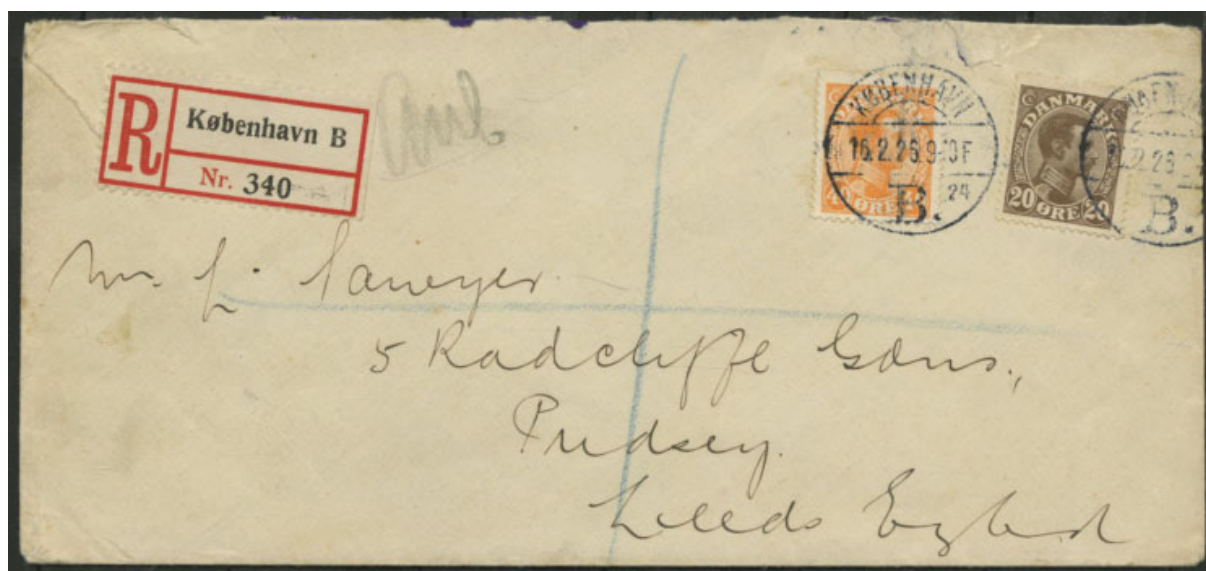 R
København B
Nr. 340
KØBENHAVN
16.2.26.9-10F
B. 24
DANMARK
40 ØRE 40
DANMARK
20 ØRE 20
2.26
B.
Mr. f. Sawyer
5 Radcliffe Gdns.,
Pudsey.
Leeds England